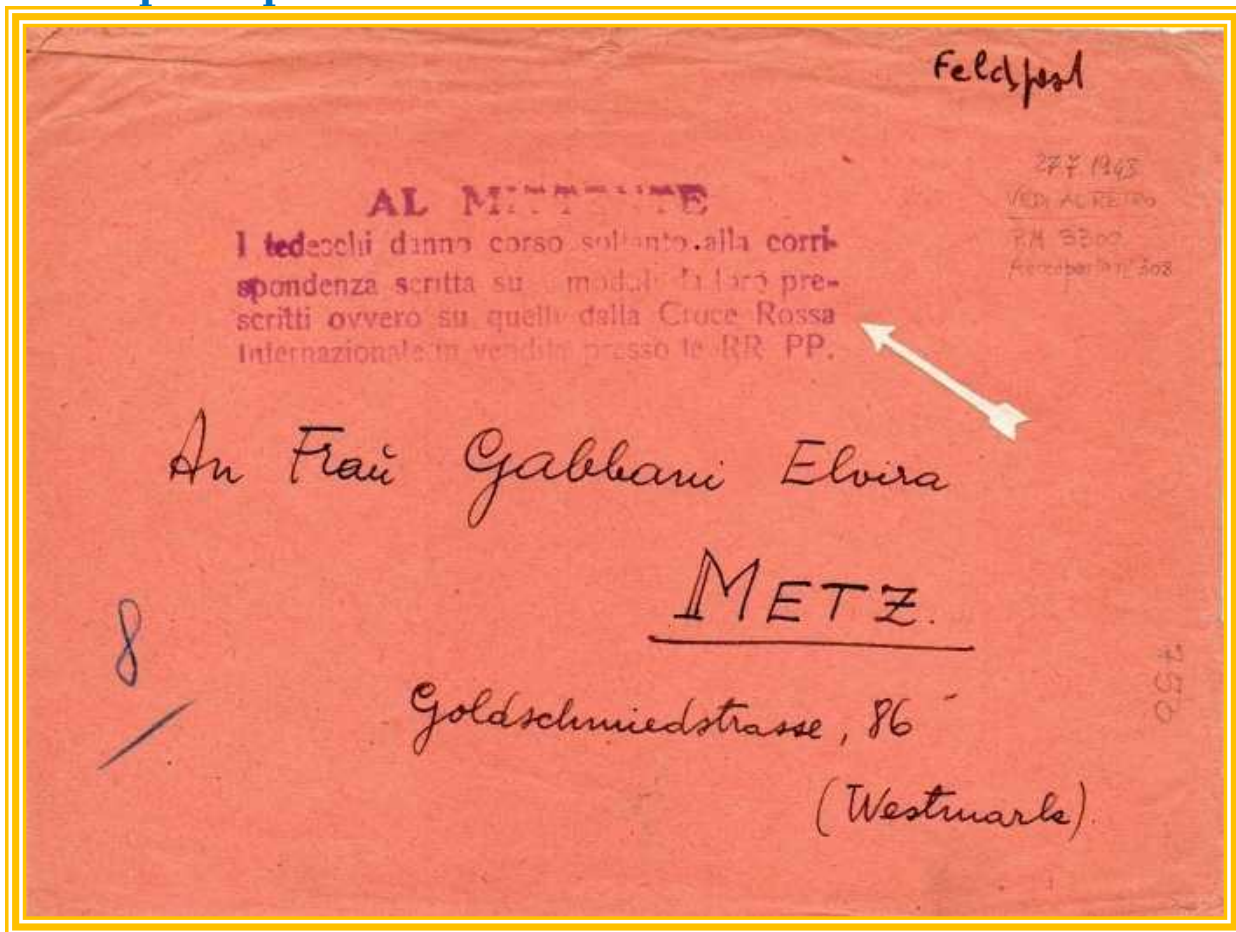 Feldpost
27 7 1943
VEDI AL RETRO
P.M 3300
Aeroporto n° 308
AL MITTENTE
I tedeschi danno corso soltanto alla corri-
spondenza scritta su moduli da loro pre-
scritti ovvero su quelli dalla Croce Rossa
Internazionale in vendita presso le RR PP.
An Frau Gabbani Elvira
METZ.
8
Goldschmiedstrasse, 86
(Westmark).
750